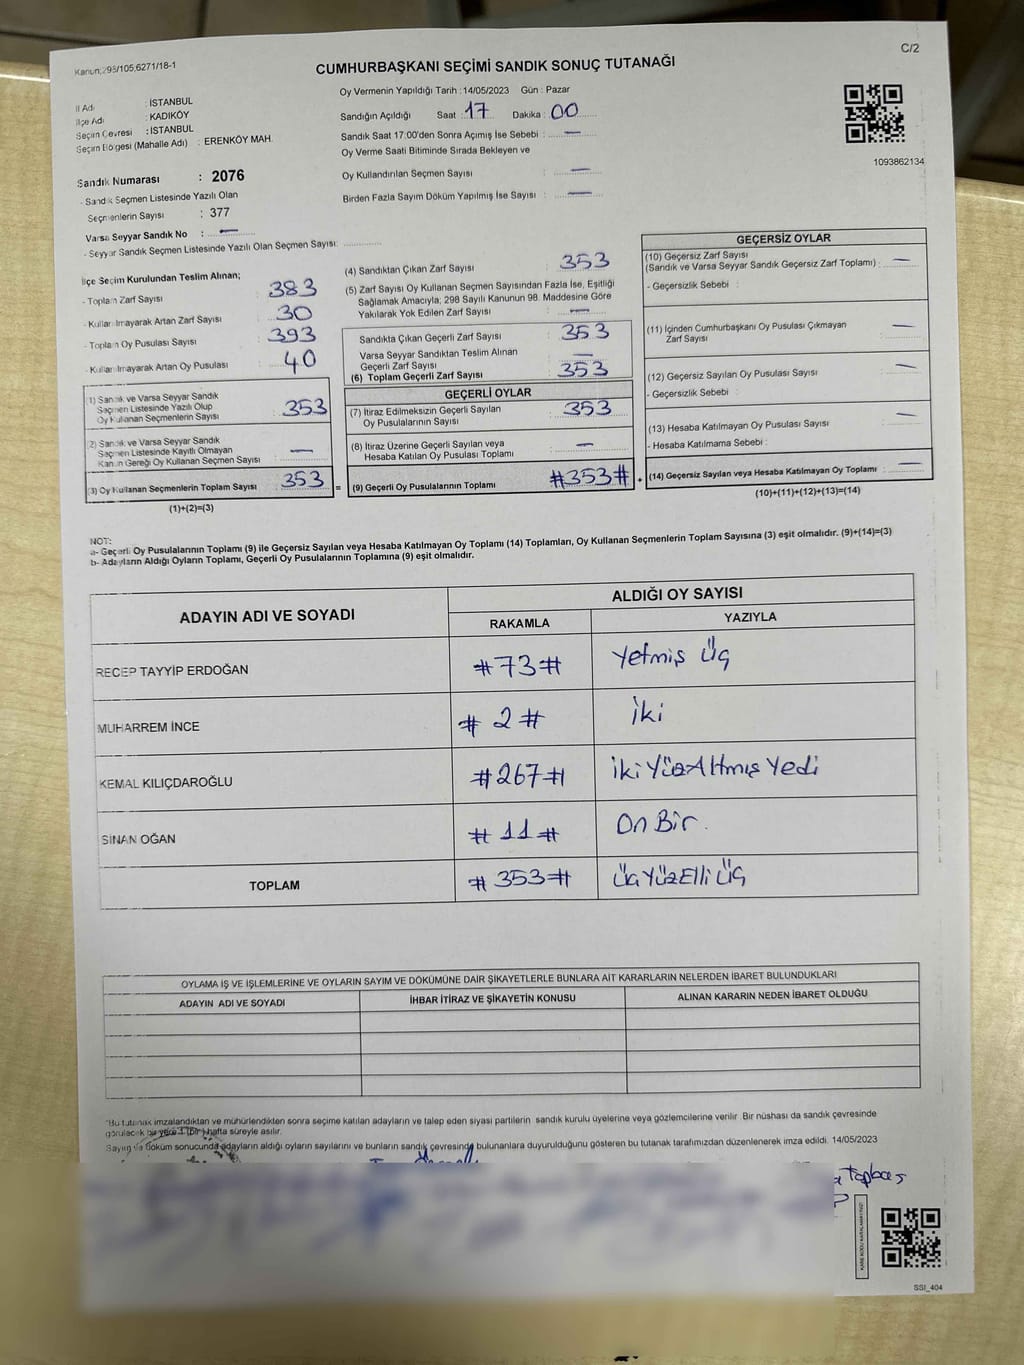 Kanun:298/105,6271/18-1
C/2
CUMHURBAŞKANI SEÇİMİ SANDIK SONUÇ TUTANAĞI
Oy Vermenin Yapıldığı Tarih : 14/05/2023 Gün : Pazar
İl Adı : İSTANBUL
İlçe Adı : KADIKÖY
Seçim Çevresi : İSTANBUL
Seçim Bölgesi (Mahalle Adı) : ERENKÖY MAH.
Sandığın Açıldığı Saat : 17 Dakika : 00
Sandık Saat 17:00'den Sonra Açımış İse Sebebi : —
Oy Verme Saati Bitiminde Sırada Bekleyen ve
Oy Kullandırılan Seçmen Sayısı : —
Birden Fazla Sayım Döküm Yapılmış İse Sayısı : —
1093862134
Sandık Numarası : 2076
- Sandık Seçmen Listesinde Yazılı Olan
Seçmenlerin Sayısı : 377
Varsa Seyyar Sandık No : —
- Seyyar Sandık Seçmen Listesinde Yazılı Olan Seçmen Sayısı:
İlçe Seçim Kurulundan Teslim Alınan;
- Toplam Zarf Sayısı : 383
- Kullanılmayarak Artan Zarf Sayısı : 30
- Toplam Oy Pusulası Sayısı : 393
- Kullanılmayarak Artan Oy Pusulası : 40
(1) Sandık ve Varsa Seyyar Sandık
Seçmen Listesinde Yazılı Olup
Oy Kullanan Seçmenlerin Sayısı : 353
(2) Sandık ve Varsa Seyyar Sandık
Seçmen Listesinde Kayıtlı Olmayan
Kanun Gereği Oy Kullanan Seçmen Sayısı : —
(3) Oy Kullanan Seçmenlerin Toplam Sayısı 353 =
(1)+(2)=(3)
(4) Sandıktan Çıkan Zarf Sayısı : 353
(5) Zarf Sayısı Oy Kullanan Seçmen Sayısından Fazla İse, Eşitliği
Sağlamak Amacıyla; 298 Sayılı Kanunun 98. Maddesine Göre
Yakılarak Yok Edilen Zarf Sayısı : —
Sandıkta Çıkan Geçerli Zarf Sayısı : 353
Varsa Seyyar Sandıktan Teslim Alınan
Geçerli Zarf Sayısı : —
(6) Toplam Geçerli Zarf Sayısı : 353
GEÇERLİ OYLAR
(7) İtiraz Edilmeksizin Geçerli Sayılan
Oy Pusulalarının Sayısı : 353
(8) İtiraz Üzerine Geçerli Sayılan veya
Hesaba Katılan Oy Pusulası Toplamı : —
(9) Geçerli Oy Pusulalarının Toplamı #353# +
GEÇERSİZ OYLAR
(10) Geçersiz Zarf Sayısı
(Sandık ve Varsa Seyyar Sandık Geçersiz Zarf Toplamı) : —
- Geçersizlik Sebebi :
(11) İçinden Cumhurbaşkanı Oy Pusulası Çıkmayan
Zarf Sayısı : —
(12) Geçersiz Sayılan Oy Pusulası Sayısı : —
- Geçersizlik Sebebi :
(13) Hesaba Katılmayan Oy Pusulası Sayısı : —
- Hesaba Katılmama Sebebi :
(14) Geçersiz Sayılan veya Hesaba Katılmayan Oy Toplamı : —
(10)+(11)+(12)+(13)=(14)
NOT:
a- Geçerli Oy Pusulalarının Toplamı (9) ile Geçersiz Sayılan veya Hesaba Katılmayan Oy Toplamı (14) Toplamları, Oy Kullanan Seçmenlerin Toplam Sayısına (3) eşit olmalıdır. (9)+(14)=(3)
b- Adayların Aldığı Oyların Toplamı, Geçerli Oy Pusulalarının Toplamına (9) eşit olmalıdır.
ADAYIN ADI VE SOYADI ALDIĞI OY SAYISI
RAKAMLA YAZIYLA
RECEP TAYYİP ERDOĞAN #73# Yetmiş Üç
MUHARREM İNCE # 2 # İki
KEMAL KILIÇDAROĞLU #267# İkiYüzAltmışYedi
SİNAN OĞAN # 11 # On Bir.
TOPLAM # 353# ÜçYüzElliÜç
OYLAMA İŞ VE İŞLEMLERİNE VE OYLARIN SAYIM VE DÖKÜMÜNE DAİR ŞİKAYETLERLE BUNLARA AİT KARARLARIN NELERDEN İBARET BULUNDUKLARI
ADAYIN ADI VE SOYADI İHBAR İTİRAZ VE ŞİKAYETİN KONUSU ALINAN KARARIN NEDEN İBARET OLDUĞU
*Bu tutanak imzalandıktan ve mühürlendikten sonra seçime katılan adayların ve talep eden siyasi partilerin sandık kurulu üyelerine veya gözlemcilerine verilir. Bir nüshası da sandık çevresinde
görülecek bir yere 1 (bir) hafta süreyle asılır.
Sayım ve döküm sonucunda adayların aldığı oyların sayılarını ve bunların sandık çevresinde bulunanlara duyurulduğunu gösteren bu tutanak tarafımızdan düzenlenerek imza edildi. 14/05/2023
Topbaş
SSI_404